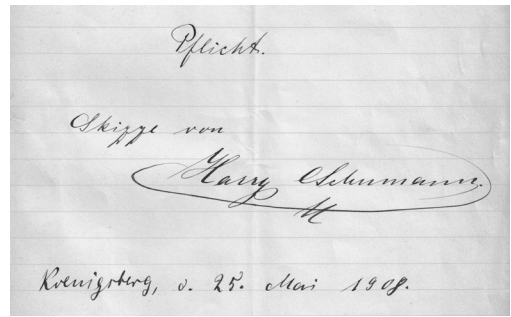 Pflicht.
Skizze von
Harry Schumann.
Koenigsberg, d. 25. Mai 1908.